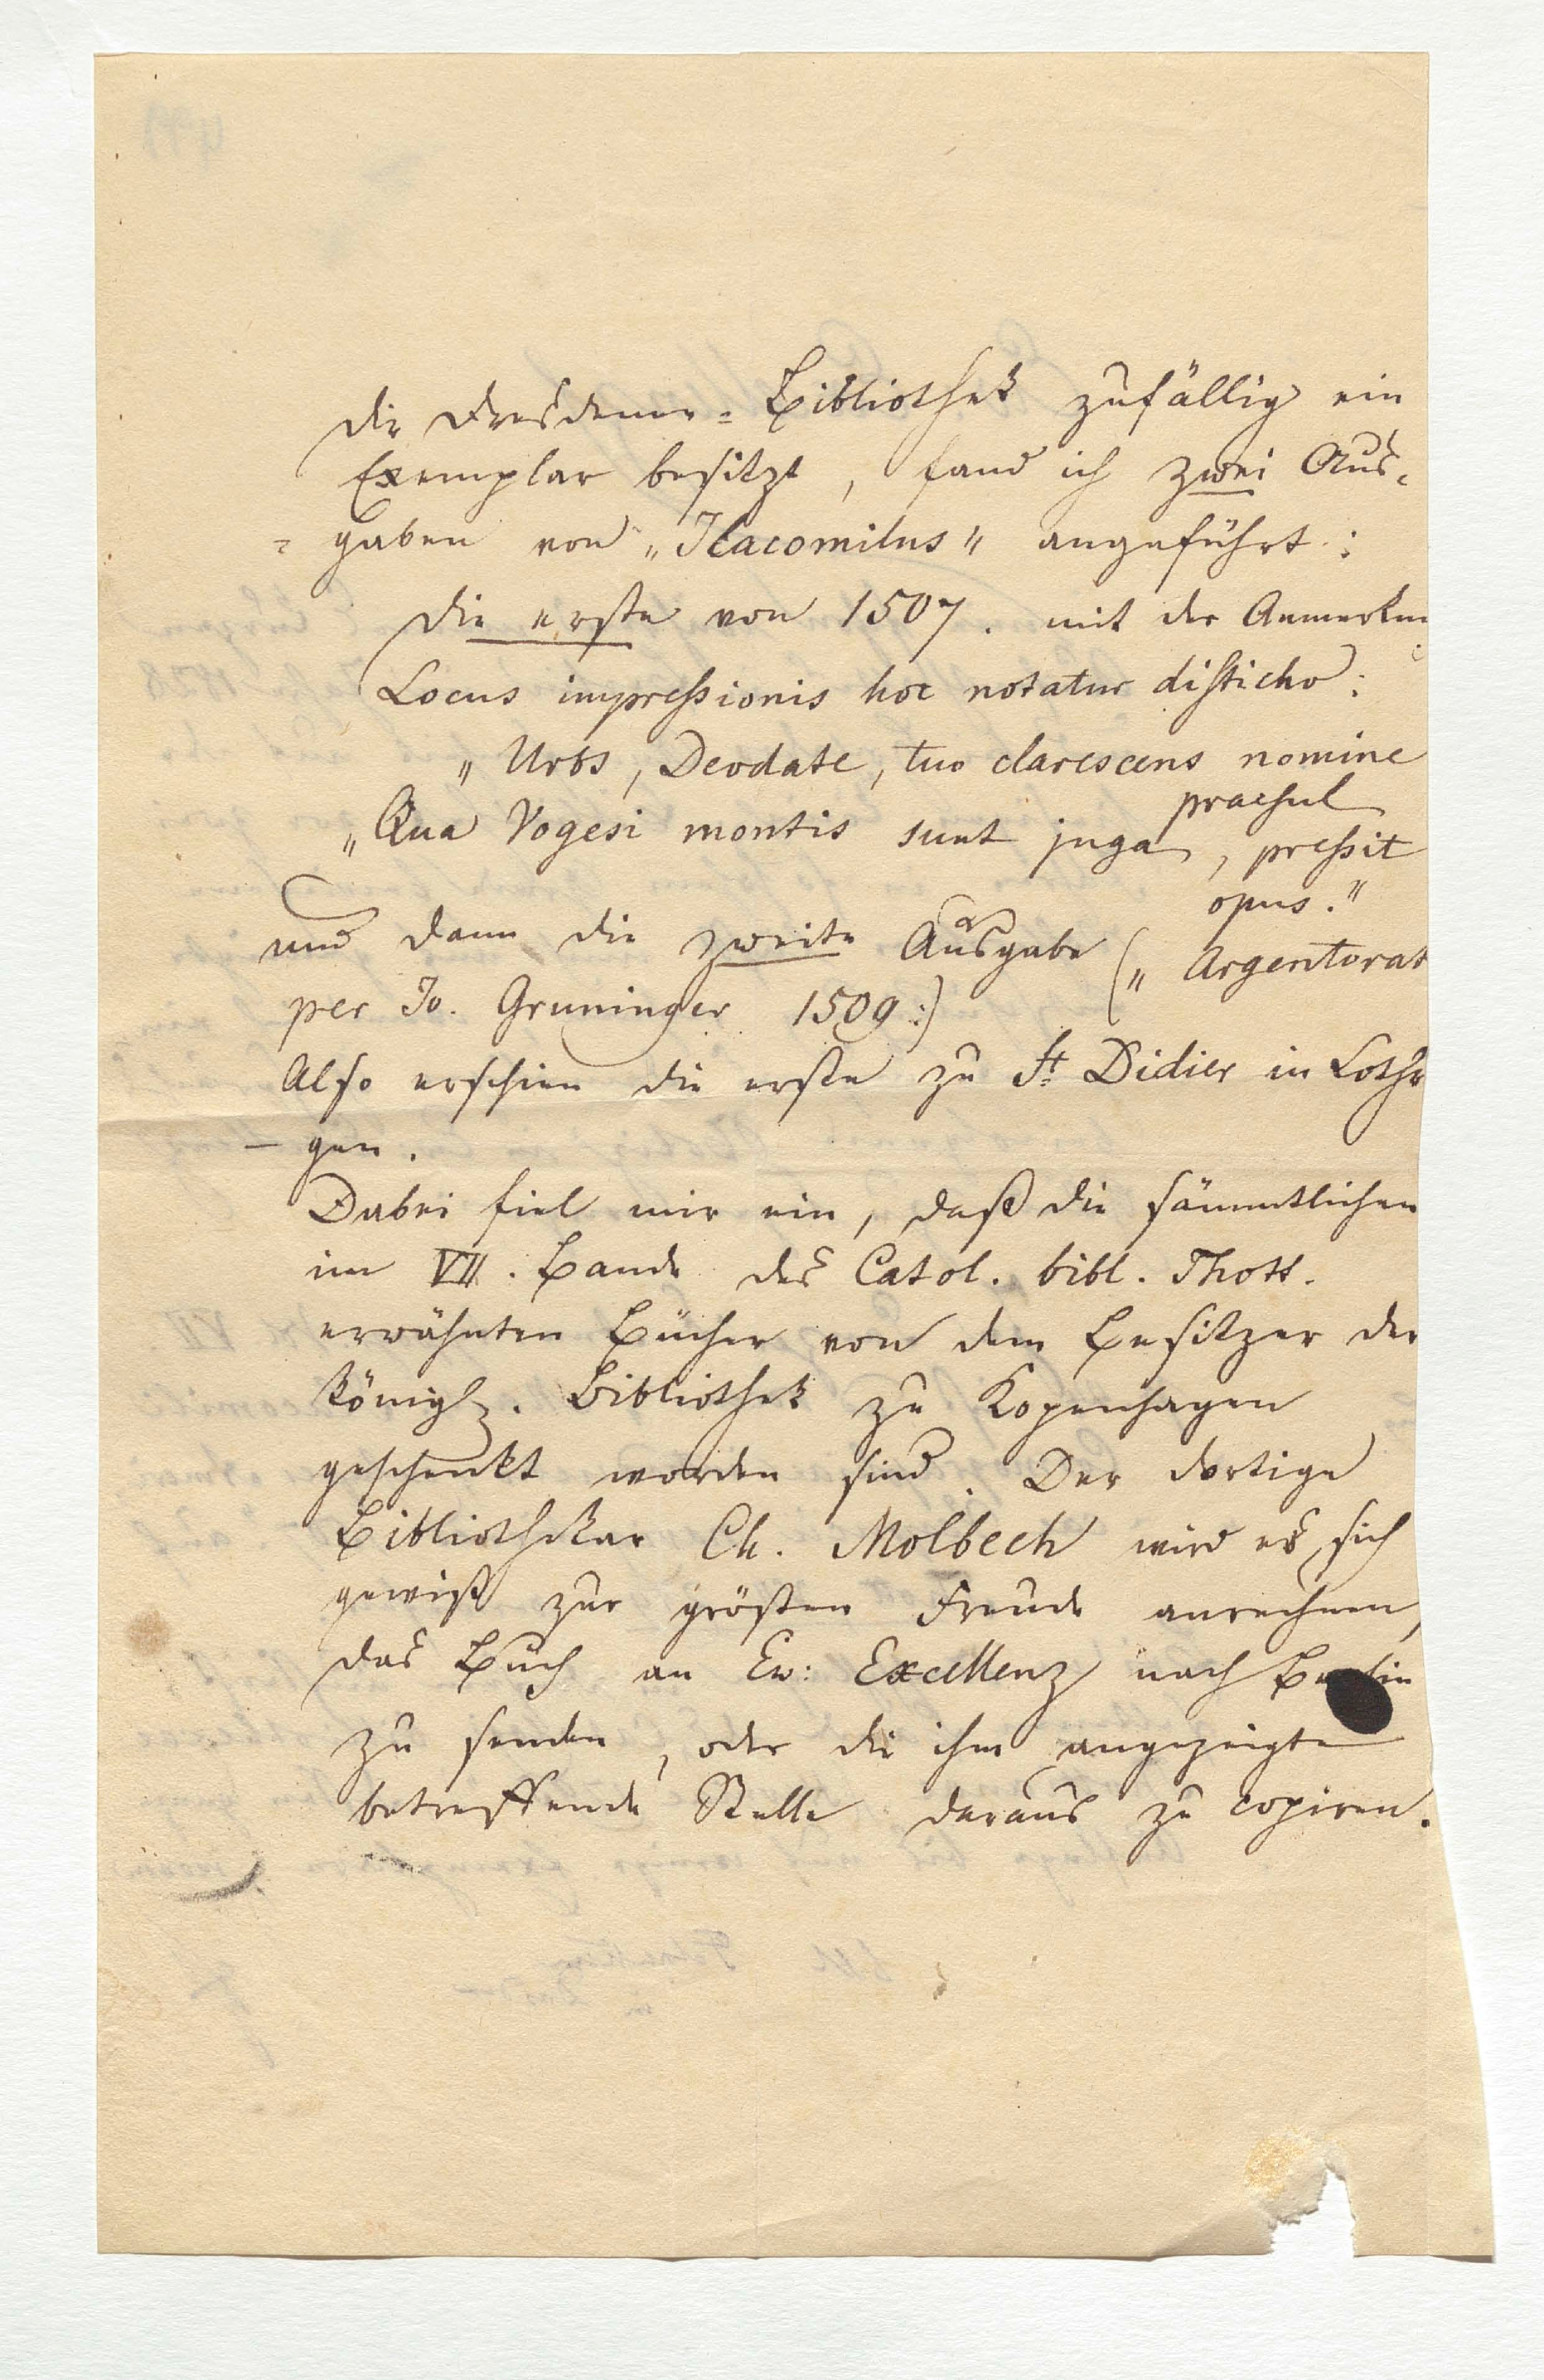 die Dresdener=Bibliothek zufällig ein
Exemplar besitzt, fand ich zwei Aus=
=gaben von „Ilacomilus" angeführt:
die erste von 1507. mit der Anmerkun
Locus impressionis hoc notatur disticho:
„Urbs, Deodate, tuo clarescens nomine
praesul
„Qua Vogesi montis sunt juga, pressit
opus."
und dann die zweite Ausgabe („Argentorat
per Jo. Gruninger 1509:)
Also erschien die erste zu St Didier in Lothr
-gen.
Dabei fiel mir ein, daß die sämmtlichen
im VII. Bande des Catol. bibl. Thott.
erwähnten Bücher von dem Besitzer der
königl. Bibliothek zu Kopenhagen
geschenkt worden sind. Der dortige
Bibliothekar Ch. Molbech wird es sich
gewiß zur größten Freude anrechnen,
das Buch an Ew: Excellenz nach Berlin
zu senden, oder die ihm angezeigte
betreffende Stelle daraus zu copiren.